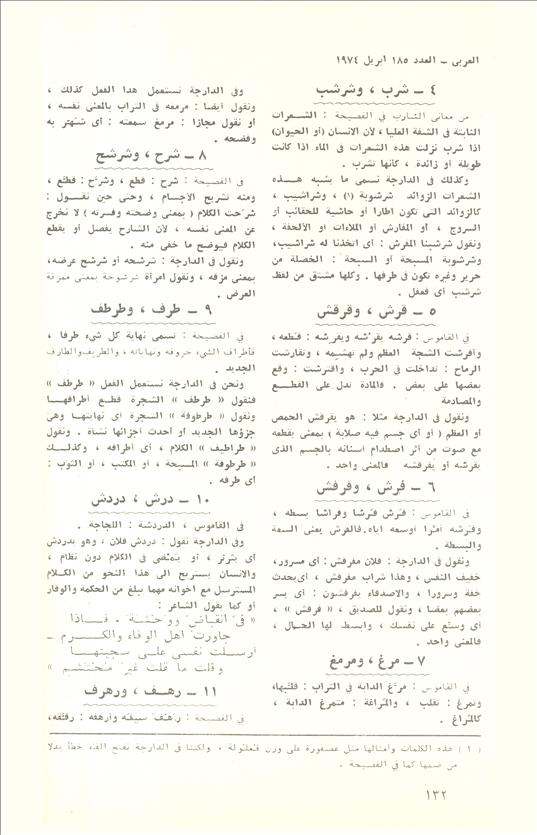 العربي ـ العدد ١٨٥ ابريل ١٩٧٤
٤ ـ شرب ، وشرشب
من معاني الشارب في الفصيحة : الشعرات
الثابتة في الشفة العليا ، لأن الانسان (أو الحيوان)
اذا شرب نزلت هذه الشعرات في الماء اذا كانت
طويلة أو زائدة ، كأنها تشرب .
وكذلك في الدارجة تسمى ما يشبه هذه
الشعرات الزوائد شرشوبة (١) ، وشراشيب ،
كالزوائد التى تكون اطارا أو حاشية للحقائب أو
السروج ، أو المفارش أو الملاءات أو الألحفة ،
ونقول شرشبنا المفرش : أى اتخذنا له شراشيب،
وشرشوبة المسبحة أو السبحة : الخصلة من
حرير وغيره تكون في طرفها . وكلها مشتق من لفظ
شرشب أى فعفل .
٥ ـ قرش ، وقرقش
في القاموس : قرشه يقرُشه ويقرِشه : قطعه ،
وأقرشت الشجة العظم ولم تهشمه ، وتقارشت
الرماح : تداخلت في الحرب ، واقترشت : وقع
بعضها على بعض . فالمادة تدل على القطع
والمصادمة
ونقول في الدارجة مثلا : هو يقرقش الحمص
أو العظم ( أو أى جسم فيه صلابة ) بمعنى يقطعه
مع صوت من أثر اصطدام أسنانه بالجسم الذى
يقرشه أو يقرقشه فالمعنى واحد .
٦ ـ فرش ، وفرفش
في القاموس : فرش فرشا وفراشا بسطه ،
وفرشه أمرا أوسعه اياه. فالفرش يعنى السعة
والبسطة .
ونقول في الدارجة : فلان مفرفش : أى مسرور،
خفيف النفس ، وهذا شراب مفرفش ، أى يحدث
خفة وسرورا ، والاصدقاء يفرفشون : أى يسر
بعضهم بعضا ، ونقول للصديق ، « فرفش » ،
أى وسّع على نفسك ، وابسط لها الحال ،
فالمعنى واحد .
٧ ـ مرغ ، ومرمغ
في القاموس : مرّغ الدابة في التراب : قلّبها،
وتمرغ : تقلب ، والمراغة : متمرغ الدابة ،
كالمراغ .
وفى الدارجة نستعمل هذا الفعل كذلك ،
ونقول أيضا : مرمغه في التراب بالمعنى نفسه ،
أو نقول مجازا : مرمغ سمعته : أى شهّر به
وفضحه .
٨ ـ شرح ، وشرشح
في الفصيحة : شرح : قطع ، وشرّح : قطّع ،
ومنه تشريح الأجسام ، وحتى حين نقول :
شرحت الكلام ( بمعنى وضحته وفسرته ) لا نخرج
عن المعنى نفسه ، لأن الشارح يفصل أو يقطع
الكلام فيوضح ما خفى منه .
ونقول في الدارجة : شرشحه أو شرشح عرضه،
بمعنى مزقه ، ونقول امرأة شرشوحة بمعنى ممزقة
العرض .
٩ ـ طرف ، وطرطف
في الفصيحة : تسمى نهاية كل شيء طرفا ،
فأطراف الشيء حروفه ونهاياته ، والطريف والطارف
الجديد .
ونحن في الدارجة نستعمل الفعل « طرطف »
فنقول « طرطف » الشجرة قطع أطرافها
ونقول « طرطوفة » الشجرة أى نهايتها وهى
جزؤها الجديد أو أحدث أجزائها نشأة . ونقول
« طراطيف » الكلام ، أى أطرافه ، وكذلك
« طرطوفة » المسبحة ، أو المكتب ، أو الثوب :
أى طرفه .
١٠ ـ درش ، دردش
في القاموس ، الدردشة : اللجاجة .
وفي الدارجة نقول : دردش فلان ، وهو يدردش
أى يثرثر ، أو يمضى في الكلام دون نظام ،
والانسان يستريح الى هذا النحو من الكلام
المسترسل مع اخوانه مهما يبلغ من الحكمة والوقار
أو كما يقول الشاعر :
« في انقباض ووحشة . فاذا
جاورت أهل الوفاء والكرم ـ
أرسلت نفسى على سجيتها
وقلت ما قلت غير محتشم »
١١ ـ رهف ، ورهرف
في الفصيحة : رهف سيفه وأرهفه : رققه،
( ١ ) هذه الكلمات وأمثالها مثل عصفورة على وزن فعلولة ، ولكننا في الدارجة نفتح الفاء خطأ بدلا
من ضمها كما في الفصيحة .
١٣٢